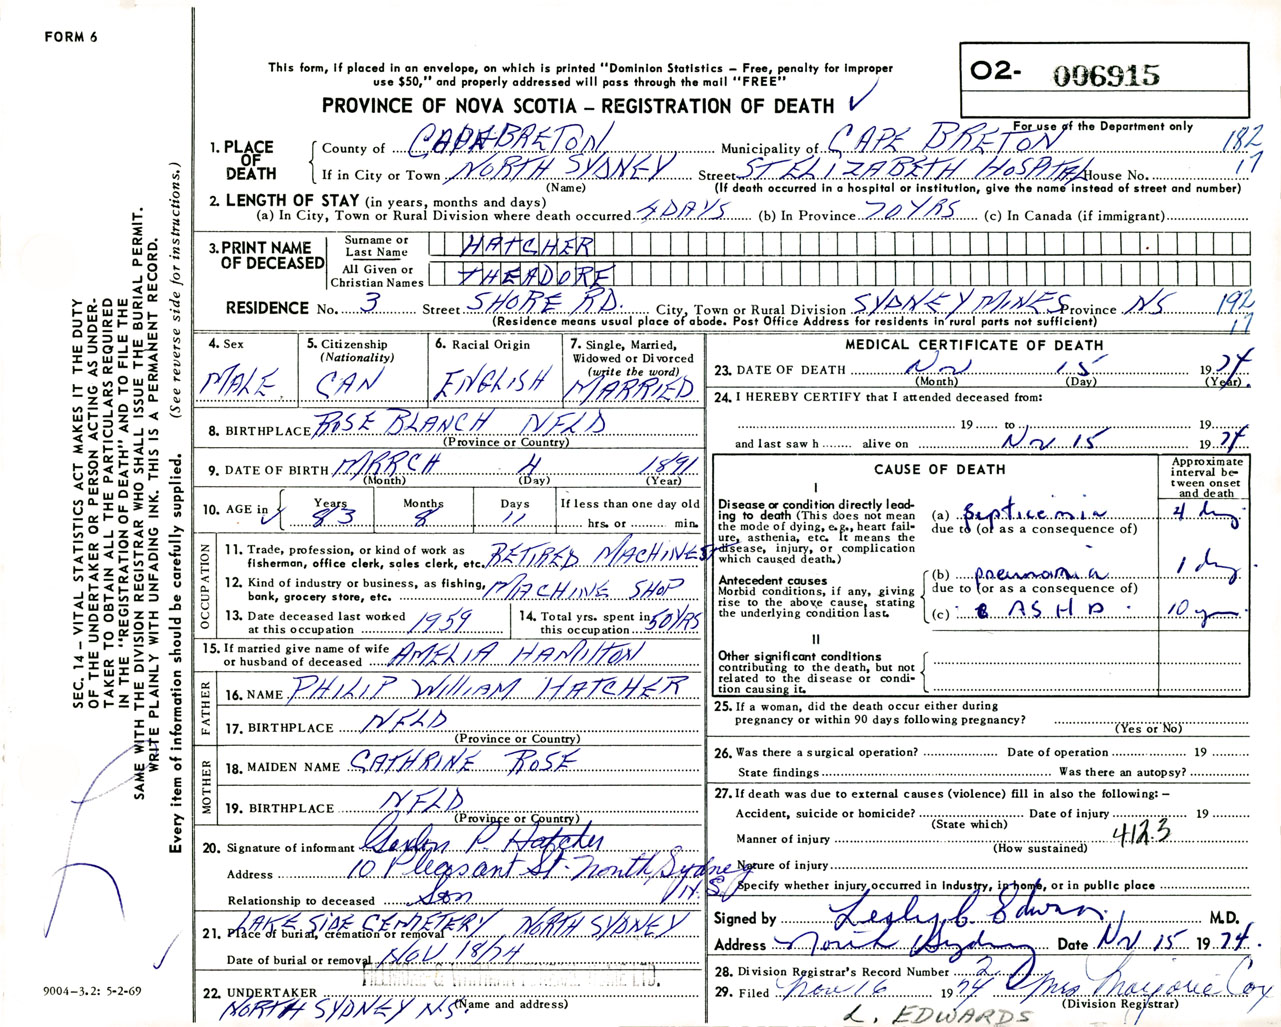 FORM 6
This form, if placed in an envelope, on which is printed "Dominion Statistics – Free, penalty for improper
use $50," and properly addressed will pass through the mail "FREE"
O2- 006915
PROVINCE OF NOVA SCOTIA – REGISTRATION OF DEATH ✓
For use of the Department only
1. PLACE OF DEATH
County of CAPE BRETON Municipality of CAPE BRETON 182
If in City or Town NORTH SYDNEY Street ST ELIZABETH HOSPITAL House No. 17
(Name) (If death occurred in a hospital or institution, give the name instead of street and number)
2. LENGTH OF STAY (in years, months and days)
(a) In City, Town or Rural Division where death occurred 4 DAYS (b) In Province 70 YRS (c) In Canada (if immigrant)
3. PRINT NAME OF DECEASED
Surname or Last Name HATCHER
All Given or Christian Names THEADORE
RESIDENCE No. 3 Street SHORE RD. City, Town or Rural Division SYDNEY MINES Province NS 192
17
(Residence means usual place of abode. Post Office Address for residents in rural parts not sufficient)
4. Sex MALE
5. Citizenship (Nationality) CAN
6. Racial Origin ENGLISH
7. Single, Married, Widowed or Divorced (write the word) MARRIED
8. BIRTHPLACE ROSE BLANCH NFLD
(Province or Country)
9. DATE OF BIRTH MARCH 4 1891
(Month) (Day) (Year)
10. AGE in ✓ Years 83 Months 8 Days 11 If less than one day old hrs. or min.
OCCUPATION
11. Trade, profession, or kind of work as
fisherman, office clerk, sales clerk, etc. RETIRED MACHINEST
12. Kind of industry or business, as fishing,
bank, grocery store, etc. MACHINE SHOP
13. Date deceased last worked
at this occupation 1959
14. Total yrs. spent in
this occupation 50 YRS
15. If married give name of wife
or husband of deceased AMELIA HAMILTON
FATHER
16. NAME PHILIP WILLIAM HATCHER
17. BIRTHPLACE NFLD
(Province or Country)
MOTHER
18. MAIDEN NAME CATHRINE ROSE
19. BIRTHPLACE NFLD
(Province or Country)
20. Signature of informant P. Hatcher
Address 10 Pleasant St. North Sydney N.S.
Relationship to deceased Son
21. Place of burial, cremation or removal LAKE SIDE CEMETERY NORTH SYDNEY
Date of burial or removal NOV 18/74
22. UNDERTAKER
(Name and address)
NORTH SYDNEY N.S.
MEDICAL CERTIFICATE OF DEATH
23. DATE OF DEATH Nov 15 1974
(Month) (Day) (Year)
24. I HEREBY CERTIFY that I attended deceased from:
19 to 19
and last saw h alive on Nov 15 1974
CAUSE OF DEATH
Approximate interval between onset and death
I
Disease or condition directly leading to death (This does not mean the mode of dying, e.g., heart failure, asthenia, etc. It means the disease, injury, or complication which caused death.)
(a) Septicemia 4 days
due to (or as a consequence of)
Antecedent causes
Morbid conditions, if any, giving rise to the above cause, stating the underlying condition last.
(b) pneumonia 1 day
due to (or as a consequence of)
(c) A S H D 10 years
II
Other significant conditions
contributing to the death, but not related to the disease or condition causing it.
25. If a woman, did the death occur either during
pregnancy or within 90 days following pregnancy?
(Yes or No)
26. Was there a surgical operation? Date of operation 19
State findings Was there an autopsy?
27. If death was due to external causes (violence) fill in also the following: –
Accident, suicide or homicide? Date of injury 19
(State which)
Manner of injury 412.3
(How sustained)
Nature of injury
Specify whether injury occurred in Industry, in home, or in public place
Signed by M.D.
Address North Sydney Date Nov 15 1974.
28. Division Registrar's Record Number 2
29. Filed Nov 16 1974 Mrs Marjorie Cox
(Division Registrar)
L. EDWARDS
SEC. 14 – VITAL STATISTICS ACT MAKES IT THE DUTY
OF THE UNDERTAKER OR PERSON ACTING AS UNDER-
TAKER TO OBTAIN ALL THE PARTICULARS REQUIRED
IN THE "REGISTRATION OF DEATH" AND TO FILE THE
SAME WITH THE DIVISION REGISTRAR WHO SHALL ISSUE THE BURIAL PERMIT.
WRITE PLAINLY WITH UNFADING INK. THIS IS A PERMANENT RECORD.
Every item of information should be carefully supplied. (See reverse side for instructions.)
9004–3.2: 5-2-69